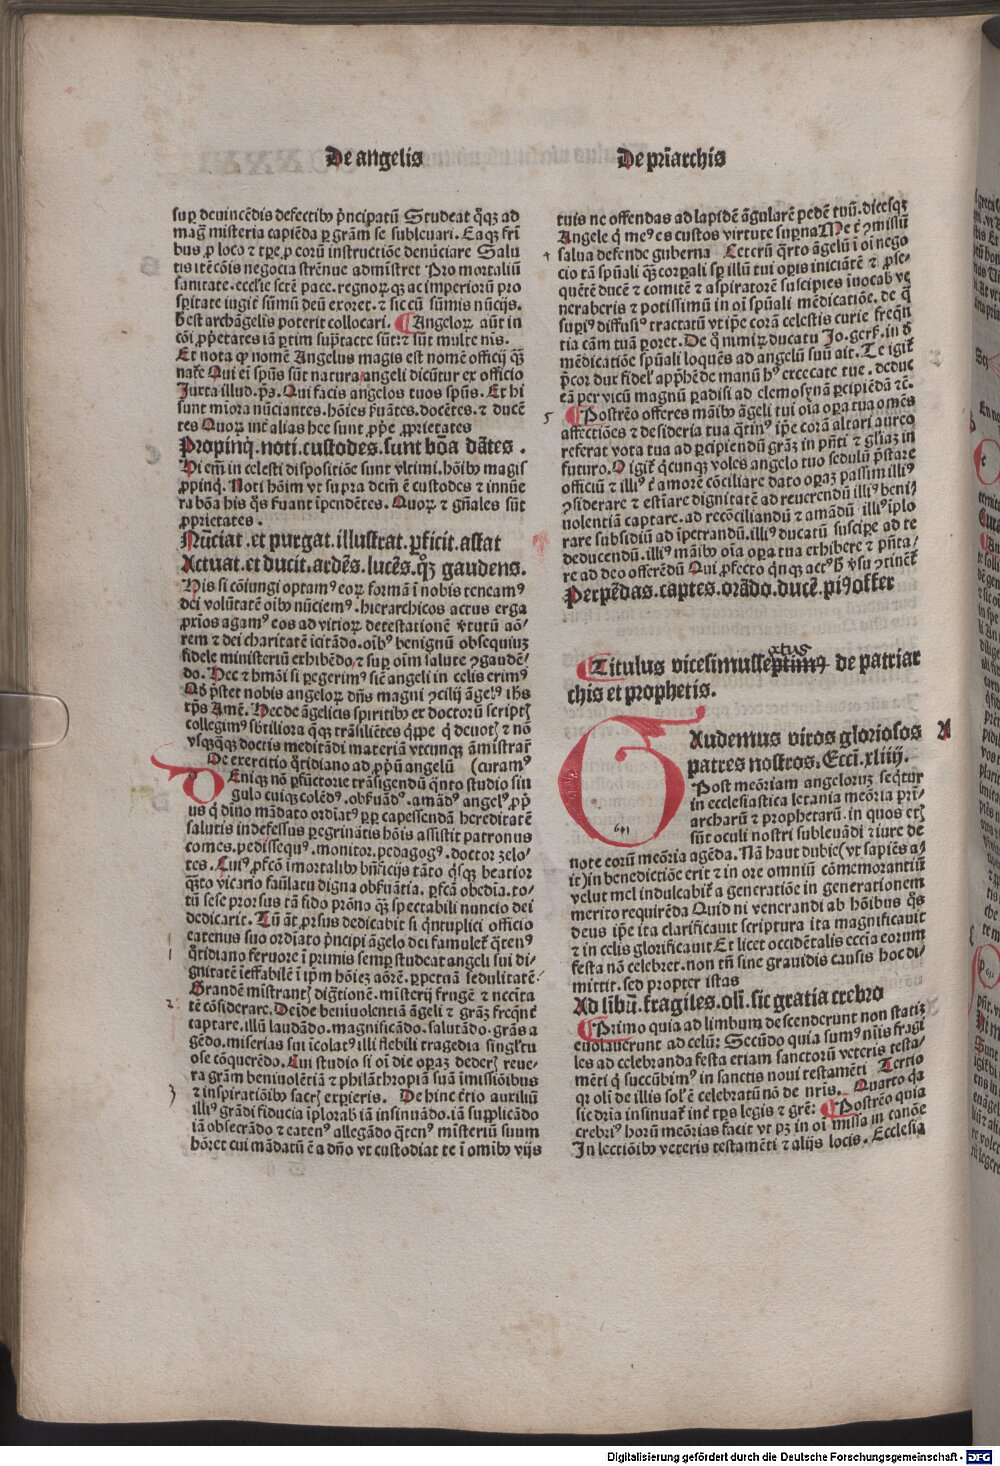 De angelis
De pr̄iarchis
suꝑ deuincēdis defectibꝰ p̄ncipatū Studeat q̄qꝫ ad
mag̃ misteria capiēda ꝑ gr̄am se subleuari. Eaqꝫ fr̄i
bus ꝓ loco ⁊ tꝑe ꝓ eorū instructiōe denūciare Salu
tis itē cōis negocia strēnue admīstret Pro mortaliū
sanitate. ecclīe setē pace. regnoꝝqꝫ ac imperiorū pro
spitate iugit̄ sūmū deū exoret. ⁊ sic cū sūmis nūcijs.
h̄ est archāgelis poterit collocari. Angeloꝝ aūt in
cōi ꝓp̄etates iā ꝑtim sup̄tacte sūt: ⁊ sūt multe nīs.
Et nota ꝙ nomē Angelus magis est nomē officij q̄ꝫ
nat̄e Qui ei sp̄us sūt natura angeli dicūtur ex officio
Juxta illud. ps. Qui facis angelos tuos sp̄us. Et hi
sunt miora nūciantes. hōies ẜuātes. docētes. ⁊ ducē
tes Quoꝝ int̄ alias hee sunt ꝓp̄e ꝓprietates
Propinq̄. noti. custodes. sunt bōa dātes.
Hi em̄ in celesti dispositiōe sunt vltimi. hōibꝰ magis
ꝓpinq̄. Noti hōim vt supra dcm̄ ē custodes ⁊ innūe
ra bōa his q̄s ẜuant īpendētes. Quoꝝ ⁊ gn̄ales sūt
ꝓprietates.
Nūciat. et purgat. illustrat. ꝑficit. astat
Actuat. et ducit. ardēs. lucēs. q̄ꝫ gaudens.
His si cōiungi optamꝰ eoꝝ formā ī nobis teneamꝰ
dei volūtatē oibꝰ nūciemꝰ. hierarchicos actus erga
ꝓrios agamꝰ eos ad vitioꝝ detestationē v̄tutū aō/
rem ⁊ dei charitatē icitādo. oibꝰ benignū obsequiuꝫ
fidele ministeriū exhibēdo/ ⁊ suꝑ oīm salute ꝯgaudē/
do. Hec ⁊ hmōi si ꝑegerimꝰ siē angeli in celis erimꝰ
Qd̄ p̄stet nobis angeloꝝ dn̄s magni ꝯcilij āgelꝰ ihs
xp̄s Amē. Hec de āgelicis spiritibꝰ ex doctorū scriptꝭ
collegimꝰ sb̄tiliora q̄ꝫ trāsiliētes q̄ip̄e ꝙ deuotꝭ ⁊ nō
vsq̄q̄ꝫ doctis meditādi materiā vtcunqꝫ āmistrar̄
De exercitio q̄tidiano ad ꝓp̄ū angelū (curamꝰ
DEniqꝫ nō ꝑfūctorie trāsigendū q̄nto studio sin
gulo cuiqꝫ colēdꝰ. obẜuādꝰ. amādꝰ angelꝰ ꝓp̄
us q̄ dīno mādato ordīatꝰ ꝑꝑ capessendā hereditatē
salutis indefessus ꝑegrinātis hōis assistit patronus
comes. pedissequꝰ. monitor. pedagogꝰ. doctor zelo/
tes. Cuiꝰ ꝓfcō imortalibꝰ bn̄ficijs tāto q̄sqꝫ beatior
q̄ꝫto vicario faūlatu digna obẜuātia. ꝑfcā obedīa. to/
tū sese prorsus tā fido prōno q̄ꝫ spectabili nuncio dei
dedicarit. Tū āt ꝓrsus dedicabit si q̄ntuplici officio
eatenus suo ordīato p̄ncipi āgelo dei famulet̄ q̄tenꝰ
q̄tidiano feruore ī primis semꝑ studeat angeli sui di/
gnitatē īeffabilē ī ip̄m hōieꝫ aōrē. ꝑpetnā sedulitatē
Grandē mīstrantꝭ dig̃tionē. misterij frugē ⁊ necīta
tē cōsiderare. Deīde beniuolentiā āgeli ⁊ grāꝫ freq̄nt̄
captare. illū laudādo. magnificādo. salutādo. grās a
gēdo. miserias sui īcolatꝰ illi flebili tragedia singl̄tu
ose cōquerēdo. Cui studio si oī die oꝑaꝫ dederꝭ reue/
ra grām beniuolētiā ⁊ philāthropiā suā imissiōibus
⁊ inspiratiōibꝰ sacrꝭ exꝑieris. Dehinc ētio auxiliū
illiꝰ grādi fiducia īplorabꝭ iā insinuādo. iā supplicādo
iā obsecrādo ⁊ eatenꝰ allegādo q̄tenꝰ misteriū suum
hōret cui mādatū ē a dn̄o vt custodiat te ī omībꝰ vijs
tuis ne offendas ad lapidē āgularē pedē tuū. dicesqꝫ
Angele q̄ meꝰ es custos virtute suꝑna Me tꝭ ꝯmissū
salua defende guberna Ceterū q̄rto āgelū ī oi nego
cio tā sp̄uali q̄ꝫ corꝑali sꝑ illū tui oꝑis iniciātē ⁊ ꝓse/
quētē ducē ⁊ comitē ⁊ aspiratorē suscipies īuocabꝭ ve
neraberis ⁊ potissimū in oī sp̄uali medicatiōe. de q̄
supiꝰ diffusiꝰ tractatū vt ip̄e corā celestis curie freq̄n
tia cām tuā ꝑoret. De q̄ nimiꝝ ducatu Jo. gerẜ. in ḡ
mēdicatiōe sp̄uali loquēs ad angelū suū ait. Te igit̄
p̄cor dux fidelꝭ app̄hēde manū hꝰ cececate tue. deduc
eā per vicū magnū ꝑadisi ad elemosynā ꝑcipiēdā ⁊c̄.
Postrēo offeres maībꝰ āgeli tui oīa oꝑa tua omēs
affectiōes ⁊ desideria tua q̄tinꝰ ip̄e corā altari aureo
referat vota tua ad ꝑcipiendū grāꝫ in pn̄ti ⁊ gl̄iaꝫ in
futuro. O igit̄ q̄cunqꝫ voles angelo tuo sedulū p̄stare
officiū ⁊ illiꝰ t̄ amorē cōciliare dato oꝑaꝫ passim illiꝰ
ꝯsiderare ⁊ estīare dignitatē ad reuerendū illiꝰ beni/
uolentiā captare. ad recōciliandū ⁊ amādū illiꝰ īplo
rare subsidiū ad īpetrandū. illiꝰ ducatū suscipe ad te
deducendū. illiꝰ māibꝰ oīa oꝑa tua exhibere ⁊ pn̄ta/
re ad deo offerēdū Qui ꝓfecto q̄nqꝫ actꝰ h̄ v̄su ꝯtinēt̄
Perpēdas. captes. orādo. ducē. piꝰ offer
xtus
Titulus vicesimusseptimꝰ de patriar
chis et prophetis.
GAudemus viros gloriosos A
patres nostros. Ecci. xliiij.
Post meōriam angeloruꝫ seq̄tur
in ecclesiastica letania meōria pr̄i/
archarū ⁊ prophetarū. in quos etꝭ
sūt oculi nostri subleuādi ⁊ iure de
note eorū meōria agēda. Nā haut dubie (vt sapiēs a/
it) in benedictiōe erit ⁊ in ore omniū cōmemorantiū
velut mel indulcabit̄ a generatiōe in generationem
merito requirēda Quid ni venerandi ab hōibus q̄s
deus ip̄e ita clarificauit scriptura ita magnificauit
⁊ in celis glorificauit Et licet occidētalis eccīa eorum
festa nō celebret. non tn̄ sine grauidis causis hoc di/
mittit. sed propter istas
Ad libū. fragiles. oli. sic gratia crebro
Primo quia ad limbum descenderunt non statiꝫ
euolauerunt ad celū: Secūdo quia sumꝰ nīs fragi
les ad celebranda festa etiam sanctorū veteris testa/
mēti q̄ succūbimꝰ in sanctis noui testamēti Tertio
qꝛ oli de illis solꝰ ē celebratū nō de nr̄is. Quarto q̄a
sic dr̄ia insinuat̄ int̄ tꝑs legis ⁊ gr̄e: Postrēo quia
crebriꝰ horū meōrias facit vt pꝫ in oī missa in canōe
In lectiōibꝰ veteris testamēti ⁊ alijs locis. Ecclesia
Digitalisierung gefördert durch die Deutsche Forschungsgemeinschaft - DFG